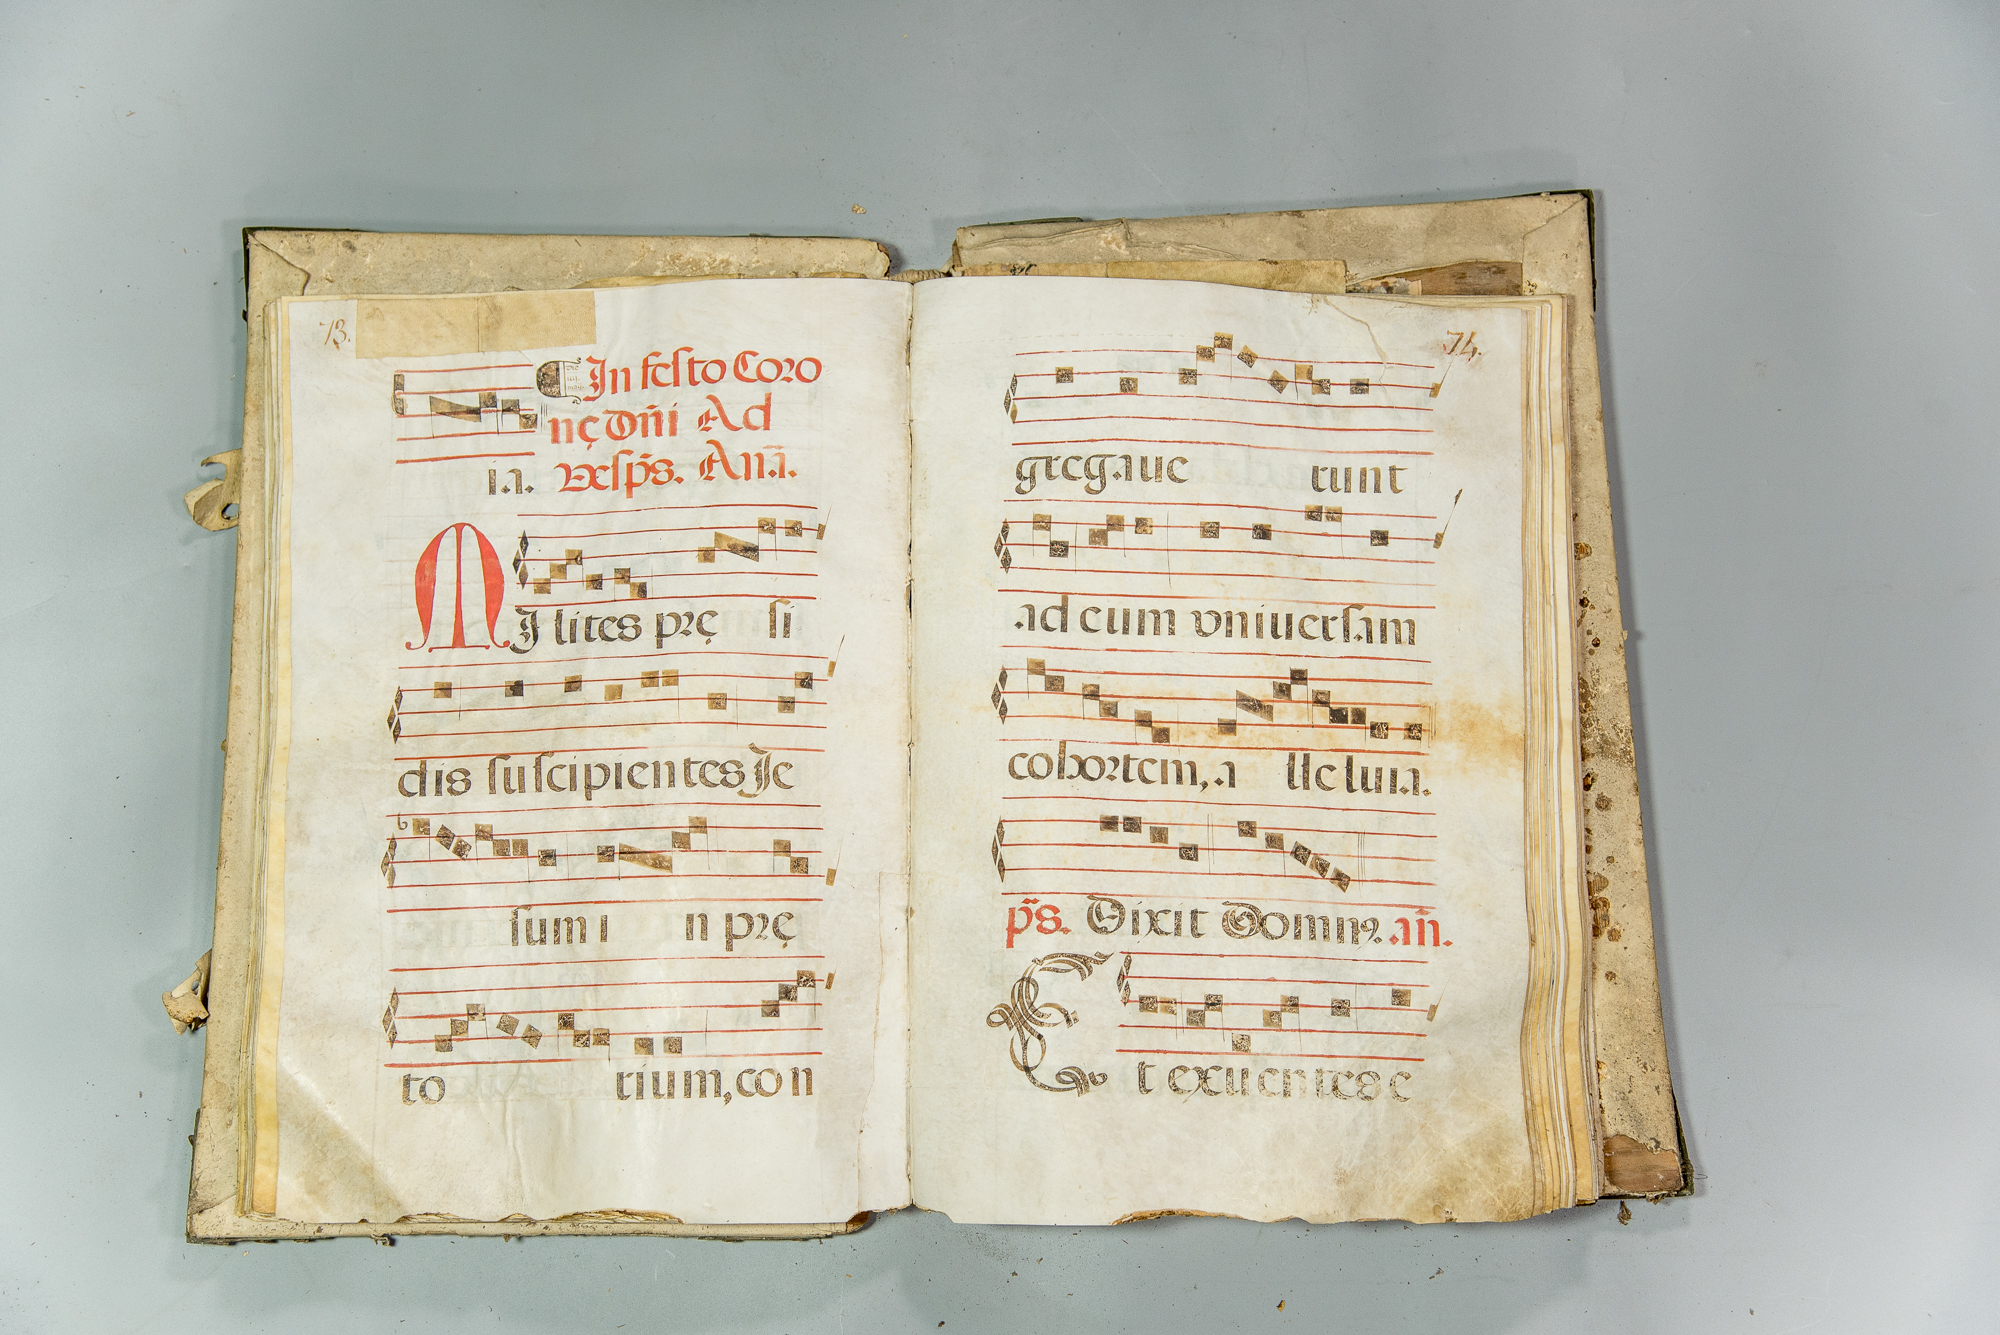 73.
In festo Coro
nę Dñi Ad
ia. Vesp̃s. Anã.
MIlites prę si
dis suscipientes Je
sum i n prę
to rium, con
74.
gregaue runt
ad eum vniuersam
cohortem, a lleluia.
p̃s. Dixit Dominꝰ. añ.
Et exuentes e